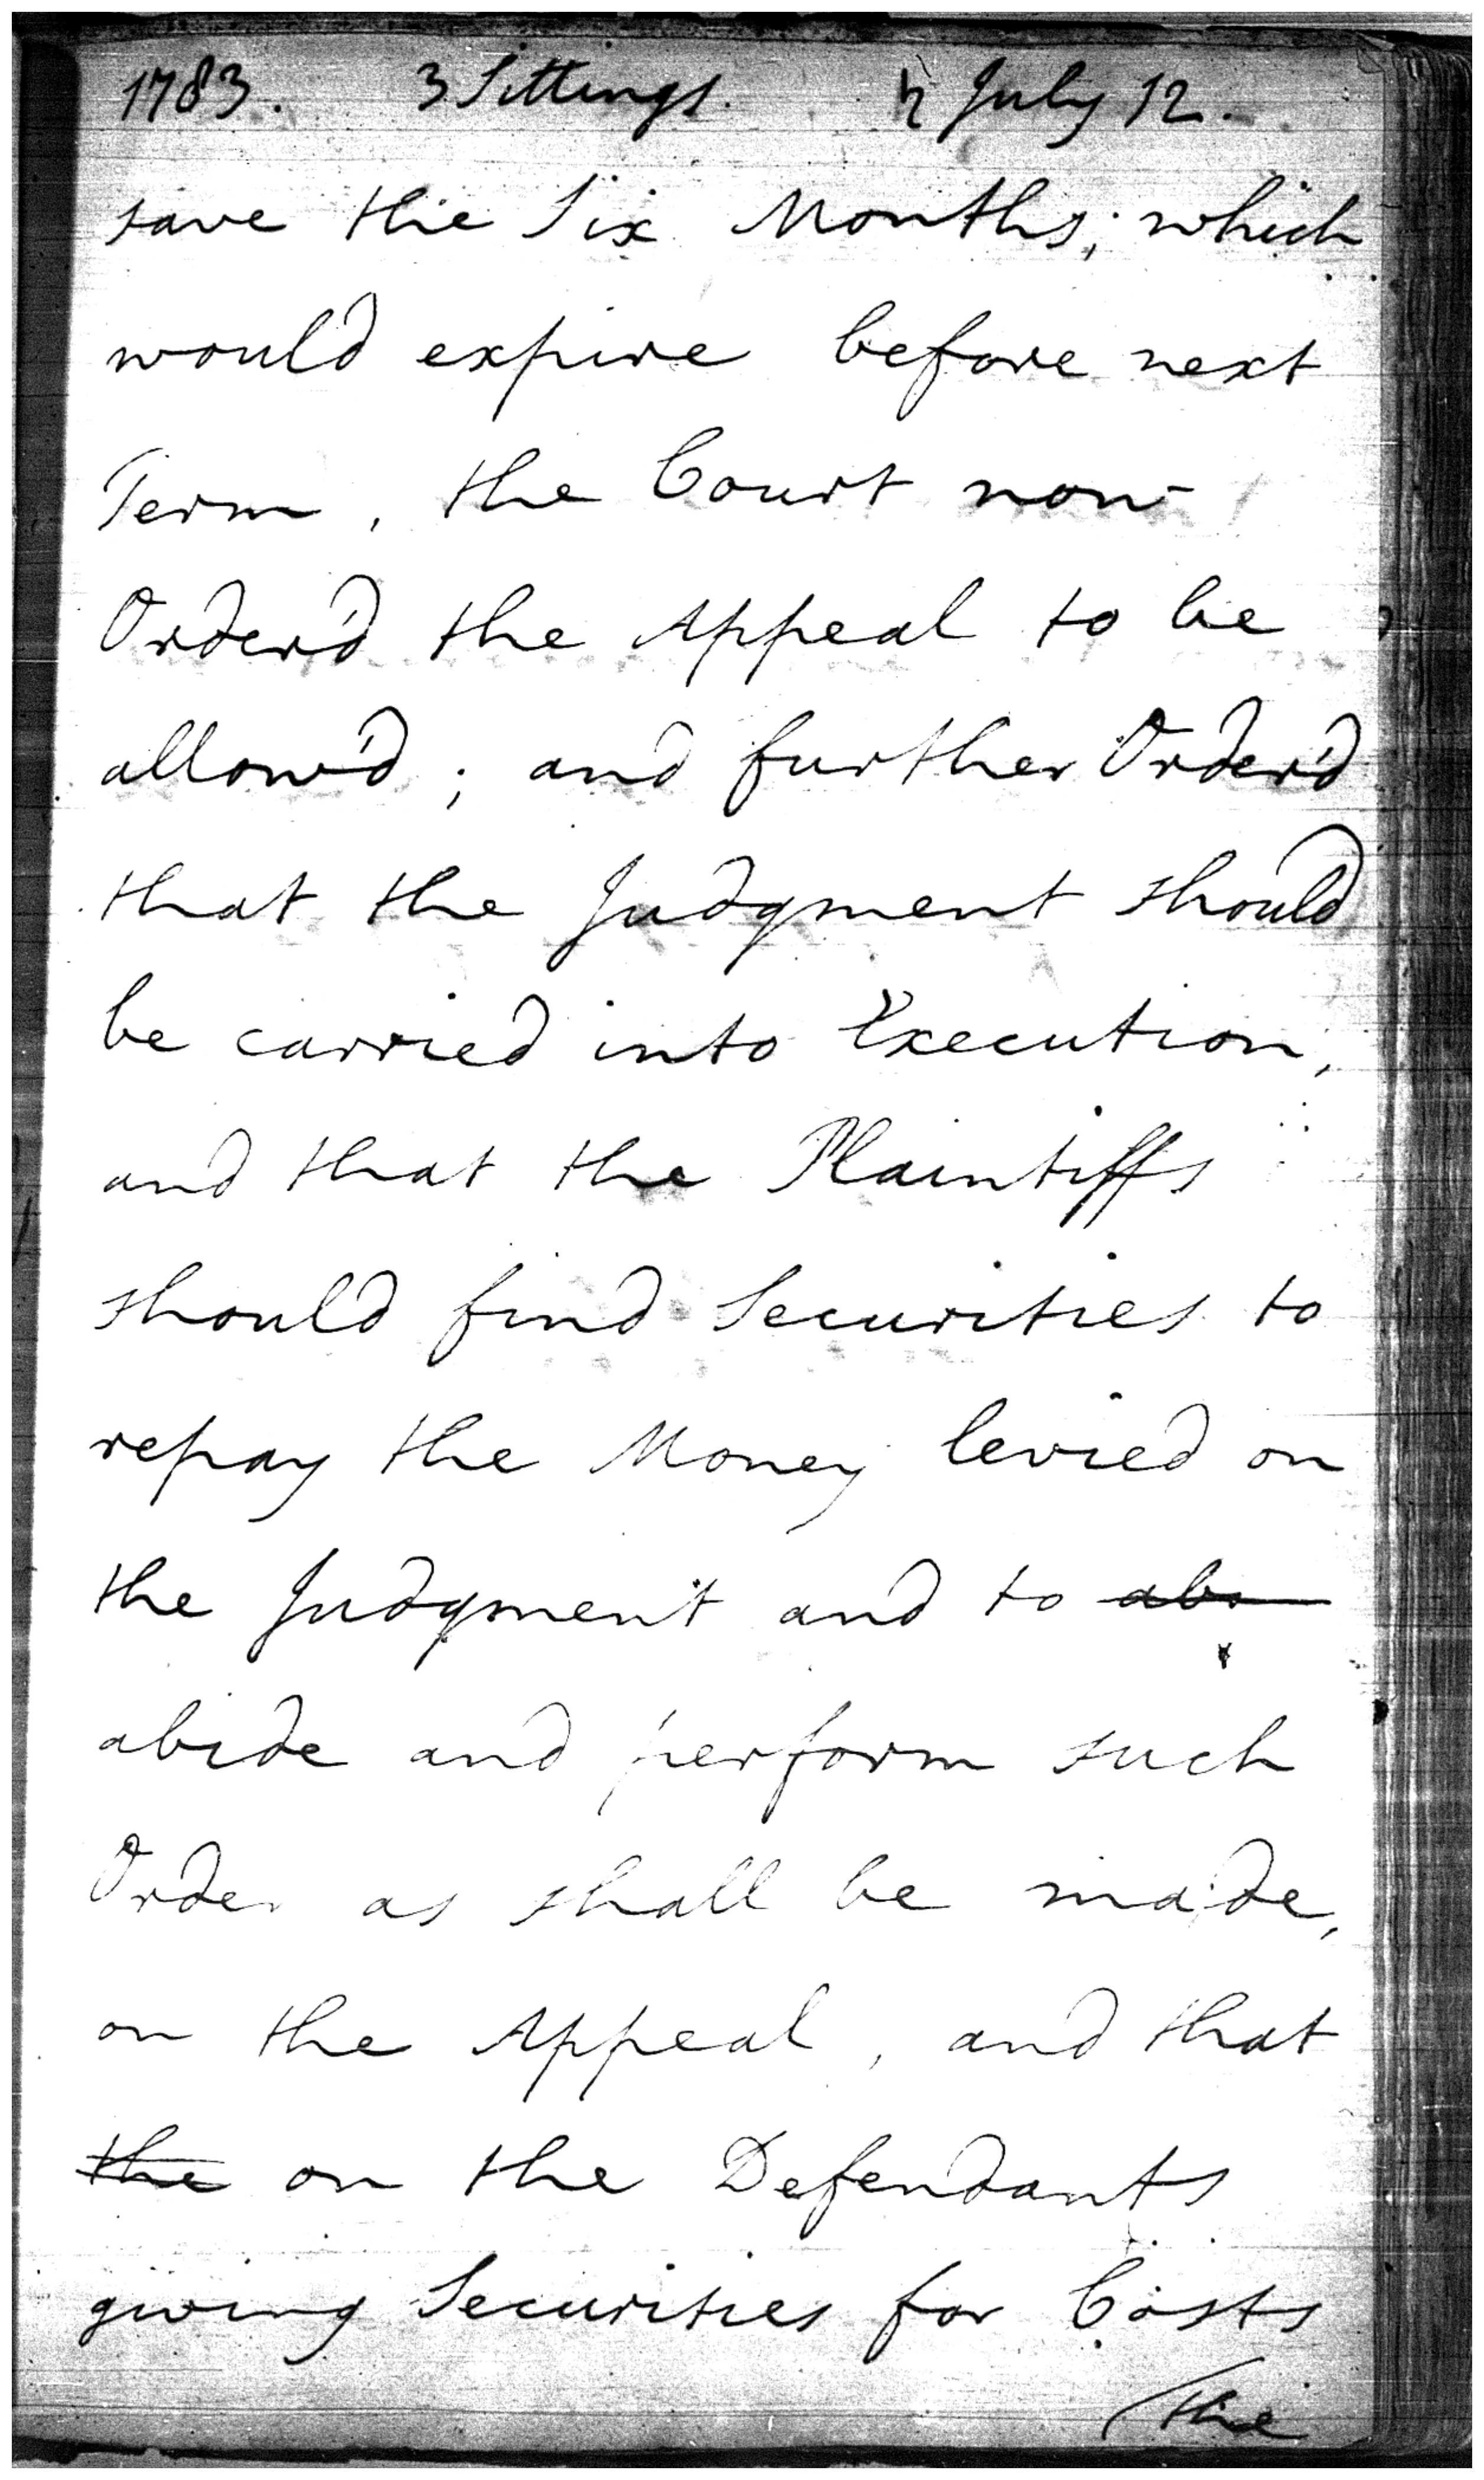 1783. 3 Sittings. ♄ July 12.
save the Six Months, which
would expire before next
Term, the Court now
Order'd the Appeal to be
allow'd; and further Order'd
that the Judgment should
be carried into Execution,
and that the Plaintiffs
should find Securities to
repay the Money levied on
the Judgment and to abo
abide and perform such
Order as shall be made,
on the Appeal, and that
the on the Defendants
giving Securities for Costs
The